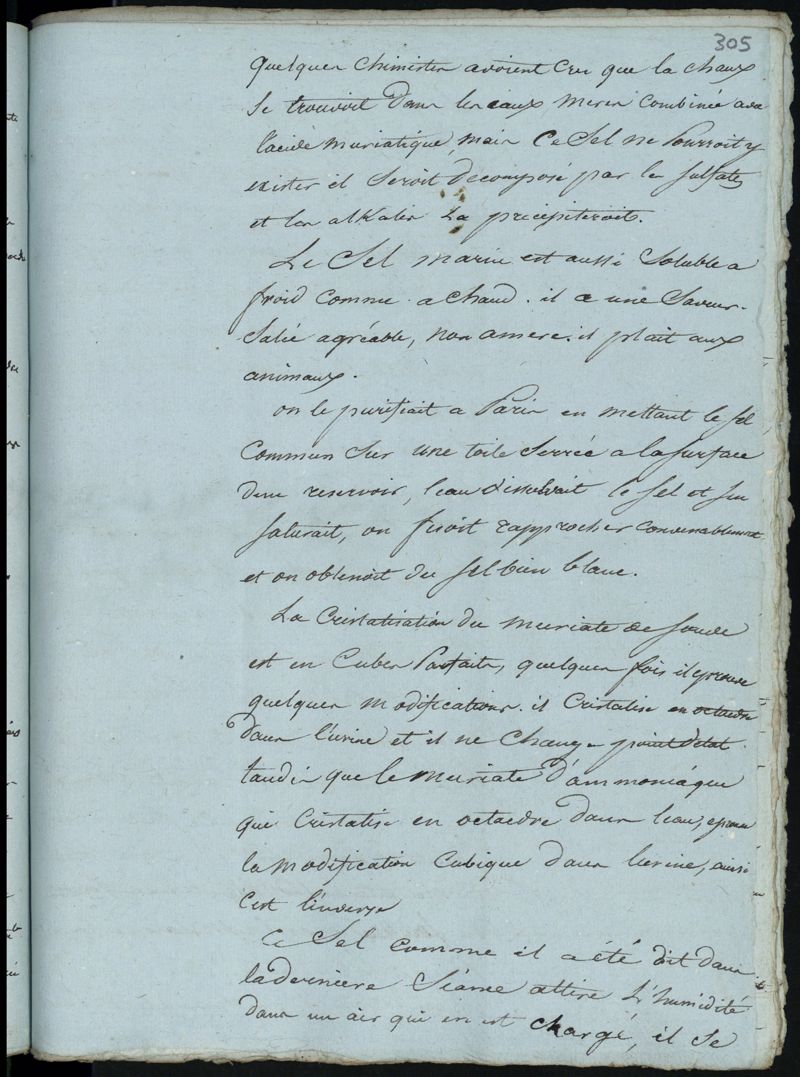 305
quelques chimistes avoient cru que la chaux
se trouvoit dans les eaux meres combinée avec
l'acide muriatique, mais ce sel ne pourroit y
exister il seroit decomposé par les sulfates
et les alkalis la précipiteroit.
Le sel marin est aussi soluble a
froid comme a chaud. il a une saveur
salée agréable, non amere. il plait aux
animaux.
on le purifiait a Paris en mettant le sel
commun sur une toile serrée a la surface
dun reservoir, l'eau dissolvait le sel et sen
saturait, on fesoit rapprocher convenablement
et on obtenoit du sel bien blanc.
La cristalisation du muriate de soude
est en cubes parfaits, quelques fois il eprouve
quelques modifications. il cristalise en octaedre
dans l'urine et il ne change point d'etat
tandis que le muriate d'ammoniaque
qui cristalise en octaedre dans leau, eprouve
la modification cubique dans lurine, ainsi
c'est l'inverse
Ce sel comme il a été dit dans
la derniere séance attire l'humidité
dans un air qui en est chargé, il se